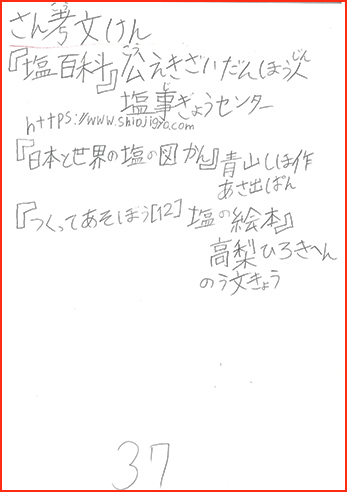 さん考文けん
『塩百科』公えきざいだんほう人
塩事ぎょうセンター
https://www.shiojigyo.com
『日本と世界の塩の図かん』青山しほ作
あさ出ぱん
『つくってあそぼう[12] 塩の絵本』
高梨ひろきへん
のう文きょう
37